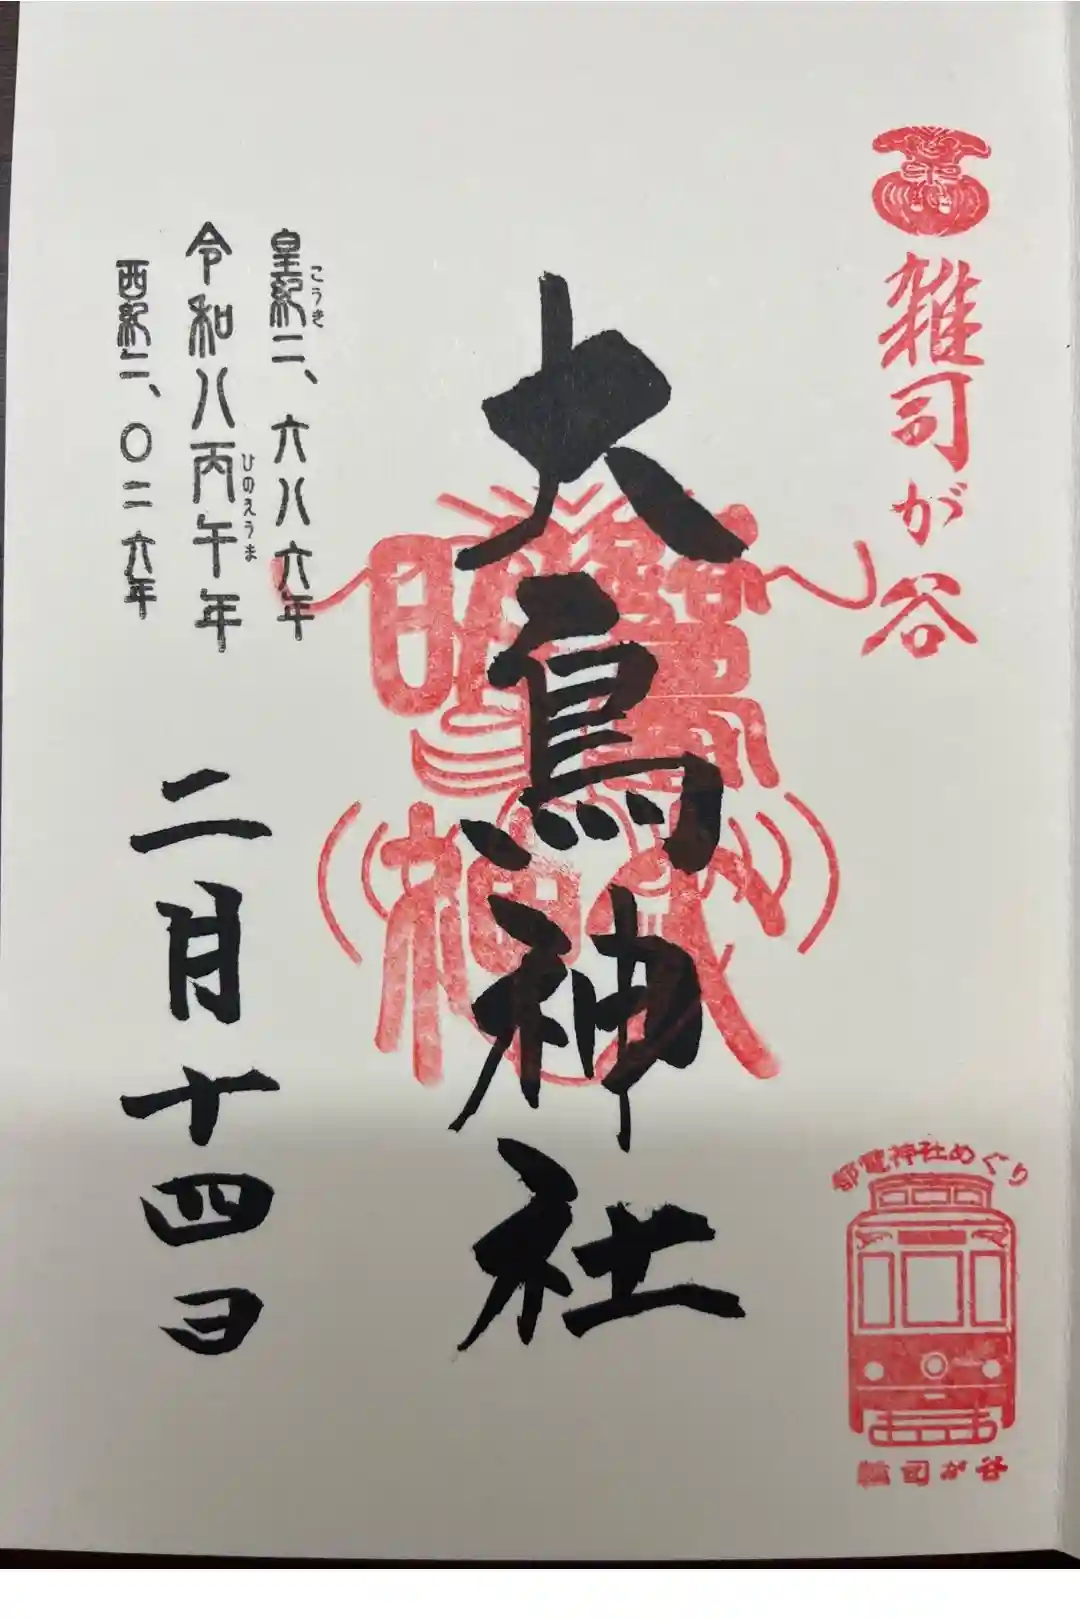 雑司が谷
都電神社めぐり
雑司が谷
大鳥神社
皇紀二、六八六年
こうき
令和八丙午年
ひのえうま
西紀二、〇二六年
二月十四日